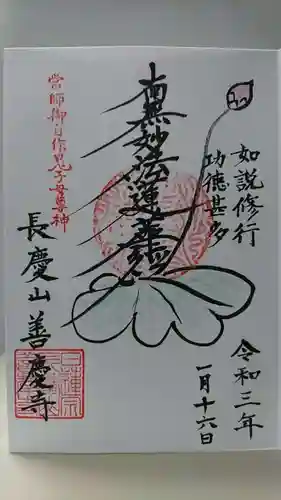 如説修行
功徳甚多
令和三年
一月十六日
南無妙法蓮華経
當師御自作鬼子母尊神
長慶山善慶寺